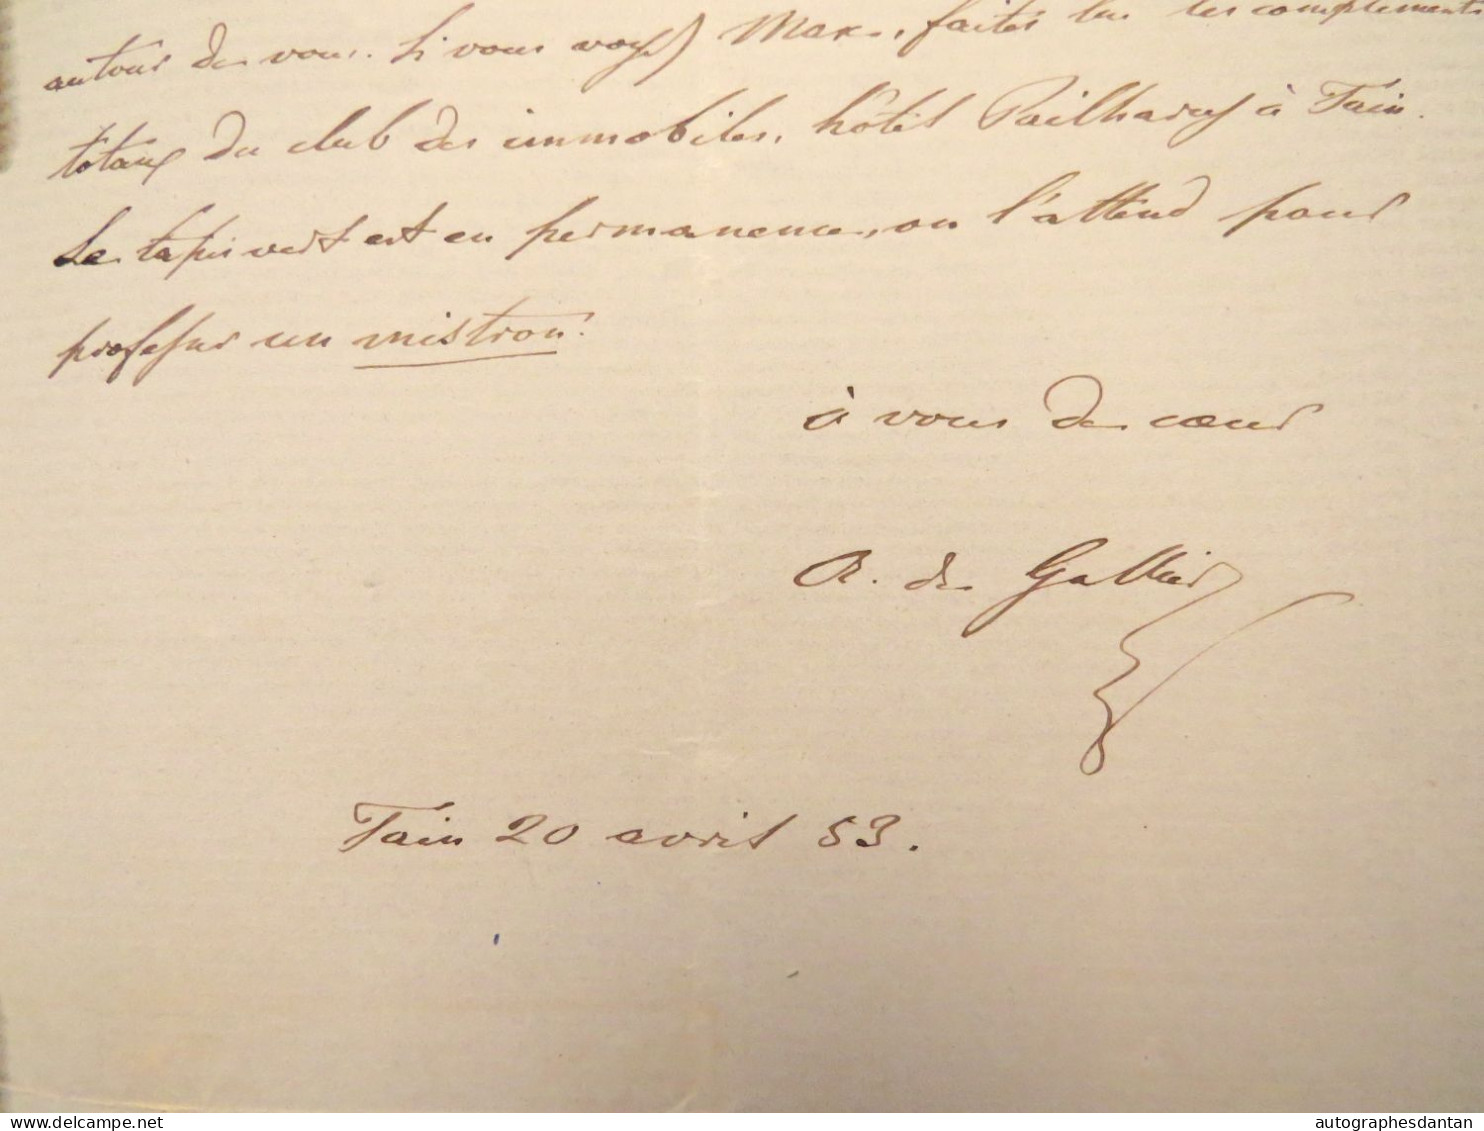 autour de vous. Si vous voyez Max, faites lui les compliments
totaux du club des immobiles, hôtel Pailhares à Tain.
Le tapis vert est en permanence, on l'attend pour
professer un mistron.
à vous de cœur
A. de Gallier
Tain 20 avril 53.
autographesdantan